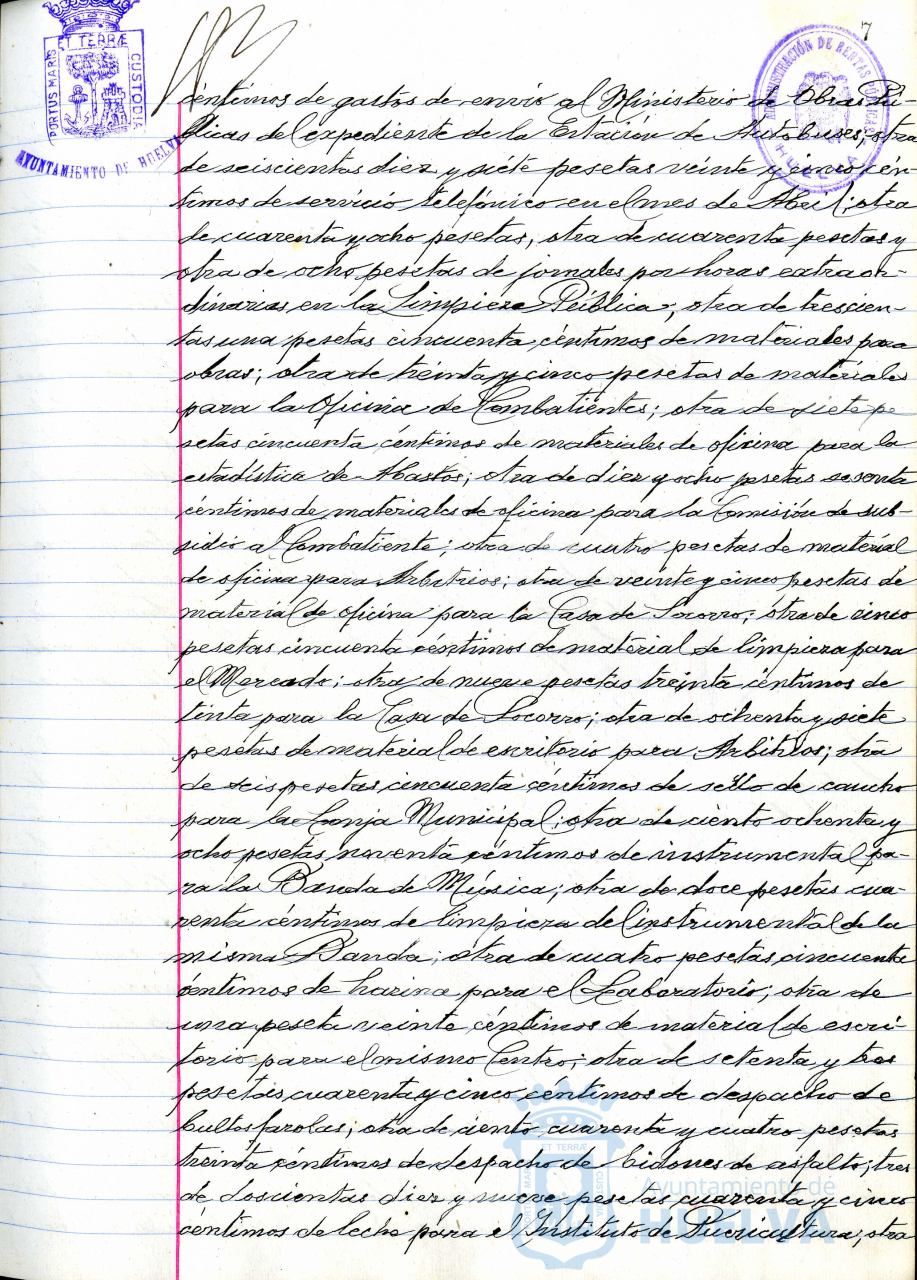 7
ET TERRÆ
PORTUS MARIS
CUSTODIA
AYUNTAMIENTO DE HUELVA
ADMINISTRACIÓN DE RENTAS PÚBLICAS
HUELVA
céntimos de gastos de envío al Ministerio de Obras Pú-
blicas del expediente de la Estación de Autobuses; otra
de seiscientas diez y siete pesetas veinte y cinco cén-
timos de servicio telefónico en el mes de Abril; otra
de cuarenta y ocho pesetas, otra de cuarenta pesetas y
otra de ocho pesetas de jornales por horas extraor-
dinarias en la Limpieza Pública; otra de trescien-
tas una pesetas cincuenta céntimos de materiales para
obras; otra de treinta y cinco pesetas de materiales
para la Oficina de Combatientes; otra de siete pe
setas cincuenta céntimos de materiales de oficina para la
estadística de Abastos; otra de diez y ocho pesetas sesenta
céntimos de materiales de oficina para la Comisión de sub-
sidio al Combatiente; otra de cuatro pesetas de material
de oficina para Arbitrios; otra de veinte y cinco pesetas de
material de oficina para la Casa de Socorro; otra de cinco
pesetas cincuenta céntimos de material de limpieza para
el Mercado; otra de nueve pesetas treinta céntimos de
tinta para la Casa de Socorro; otra de ochenta y siete
pesetas de material de escritorio para Arbitrios; otra
de seis pesetas cincuenta céntimos de sello de caucho
para la Lonja Municipal; otra de ciento ochenta y
ocho pesetas noventa céntimos de instrumental pa-
ra la Banda de Música; otra de doce pesetas cua-
renta céntimos de limpieza del instrumental de la
misma Banda; otra de cuatro pesetas cincuenta
céntimos de harina para el Laboratorio; otra de
una peseta veinte céntimos de material de escri-
torio para el mismo Centro; otra de setenta y tres
pesetas cuarenta y cinco céntimos de despacho de
bultos farolas; otra de ciento cuarenta y cuatro pesetas
treinta céntimos de despacho de bidones de asfalto; tres
de doscientas diez y nueve pesetas cuarenta y cinco
céntimos de leche para el Instituto de Puericultura; otra
Ayuntamiento de
HUELVA